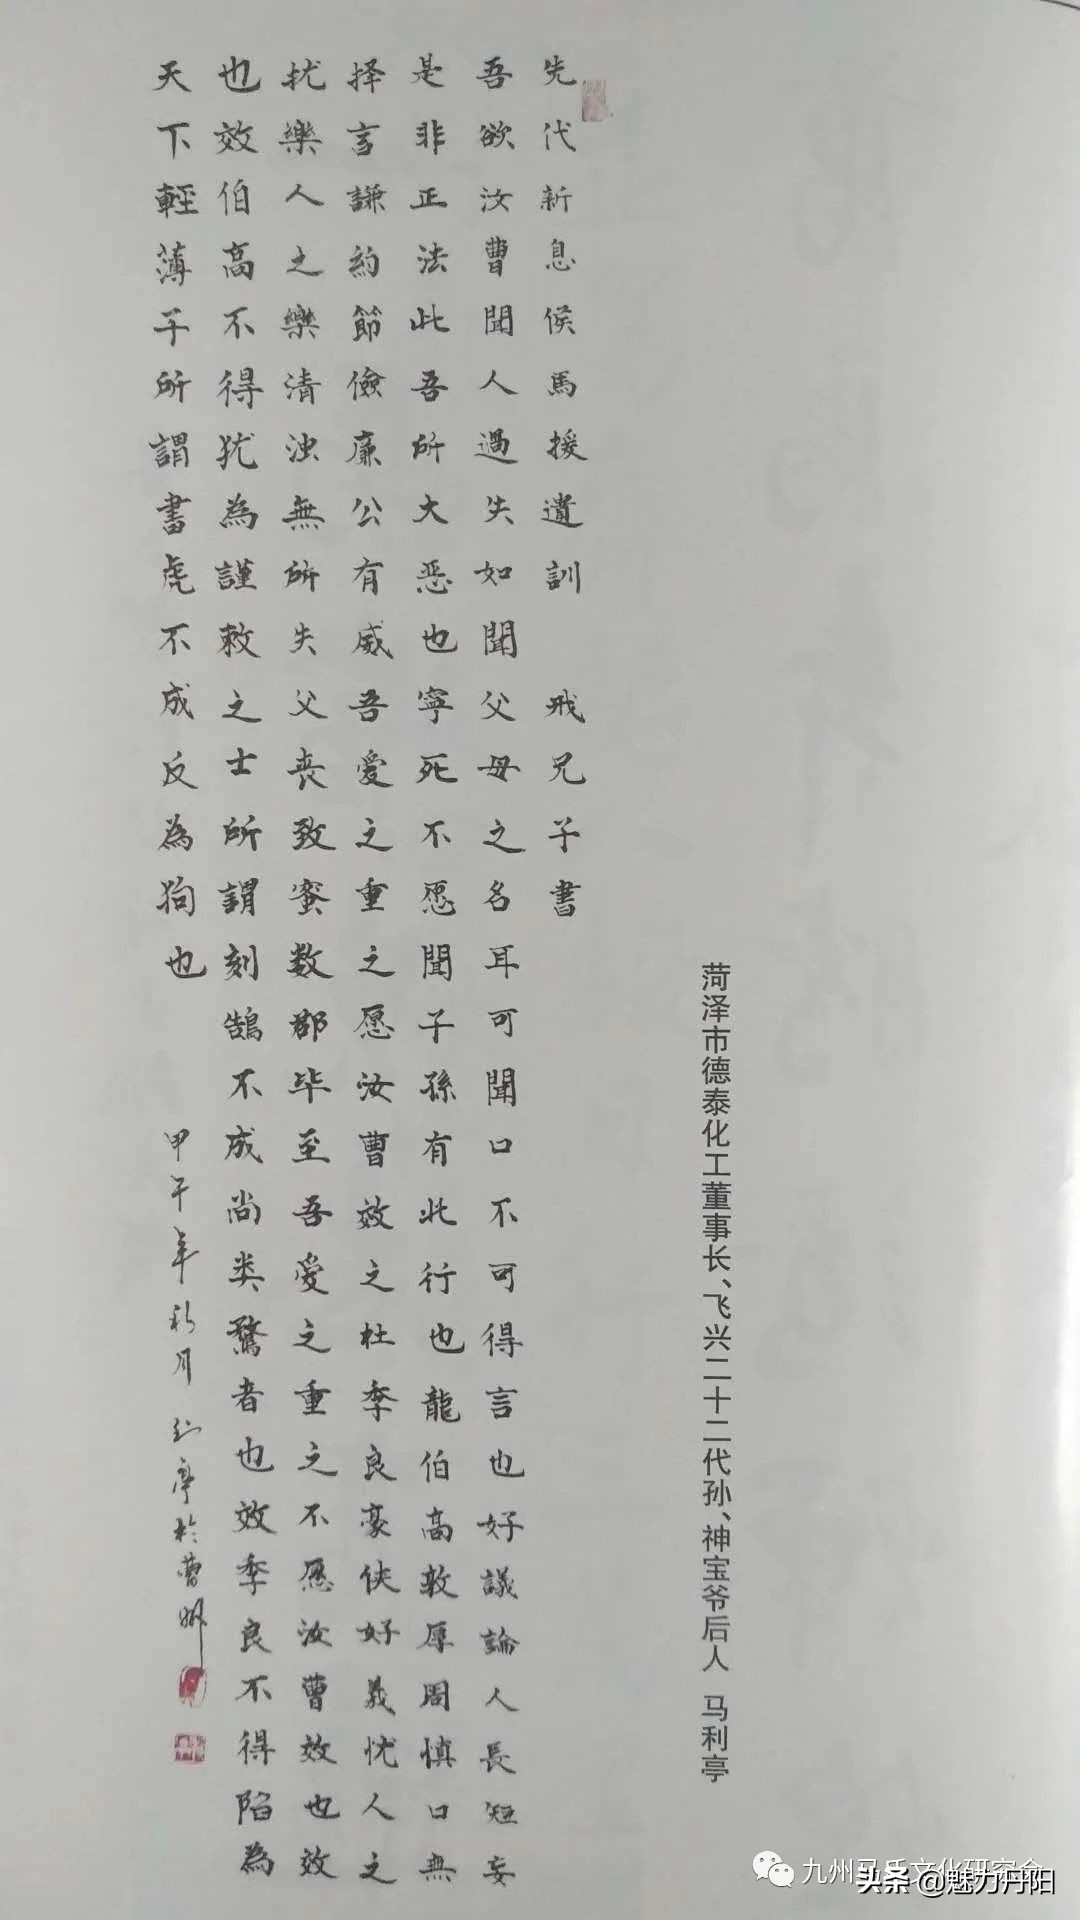 菏泽市德泰化工董事长、飞兴二十二代孙、神宝爷后人 马利亭
先代新息侯馬援遺訓 戒兄子書
吾欲汝曹聞人過失如聞父母之名耳可聞口不可得言也好議論人長短妄
是非正法此吾所大恶也寧死不愿聞子孫有此行也龍伯高敦厚周慎口無
择言謙約節儉廉公有威吾爱之重之愿汝曹效之杜季良豪侠好義忧人之
扰樂人之樂清浊無所失父丧致蜜数郡毕至吾爱之重之不愿汝曹效也效
也效伯高不得犹為謹敕之士所謂刻鵠不成尚类鶩者也效季良不得陷為
天下輕薄子所謂書虎不成反為狗也
甲午年秋月 利亭於曹州
九州马氏文化研究会
头条 @魅力丹阳